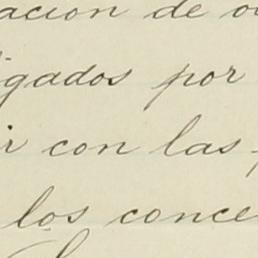 acion de o
gados por
r con las
los conce